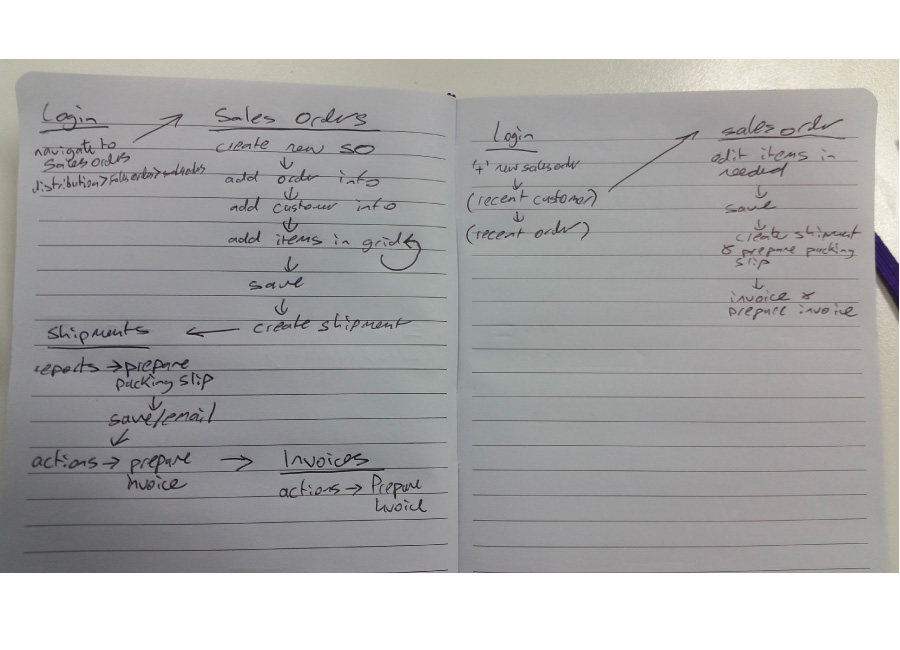 Login
navigate to
Sales order
distribution > sales order > sales orders
Sales orders
create new SO
↓
add order info
↓
add customer info
↓
add items in grid
↓
save
↓
create shipment
Shipments ←
reports → prepare
packing slip
↓
save/email
↓
actions → prepare
invoice
→ Invoices
actions → Prepare
Invoice
Login
'+' new sales order
↓
(recent customer)
↓
(recent order)
sales order
edit items in
needed
↓
save
↓
create shipment
& prepare packing
slip
↓
invoice &
prepare invoice